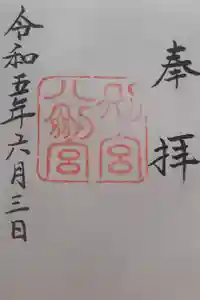 奉拝
別宮
八剣宮
令和五年六月三日